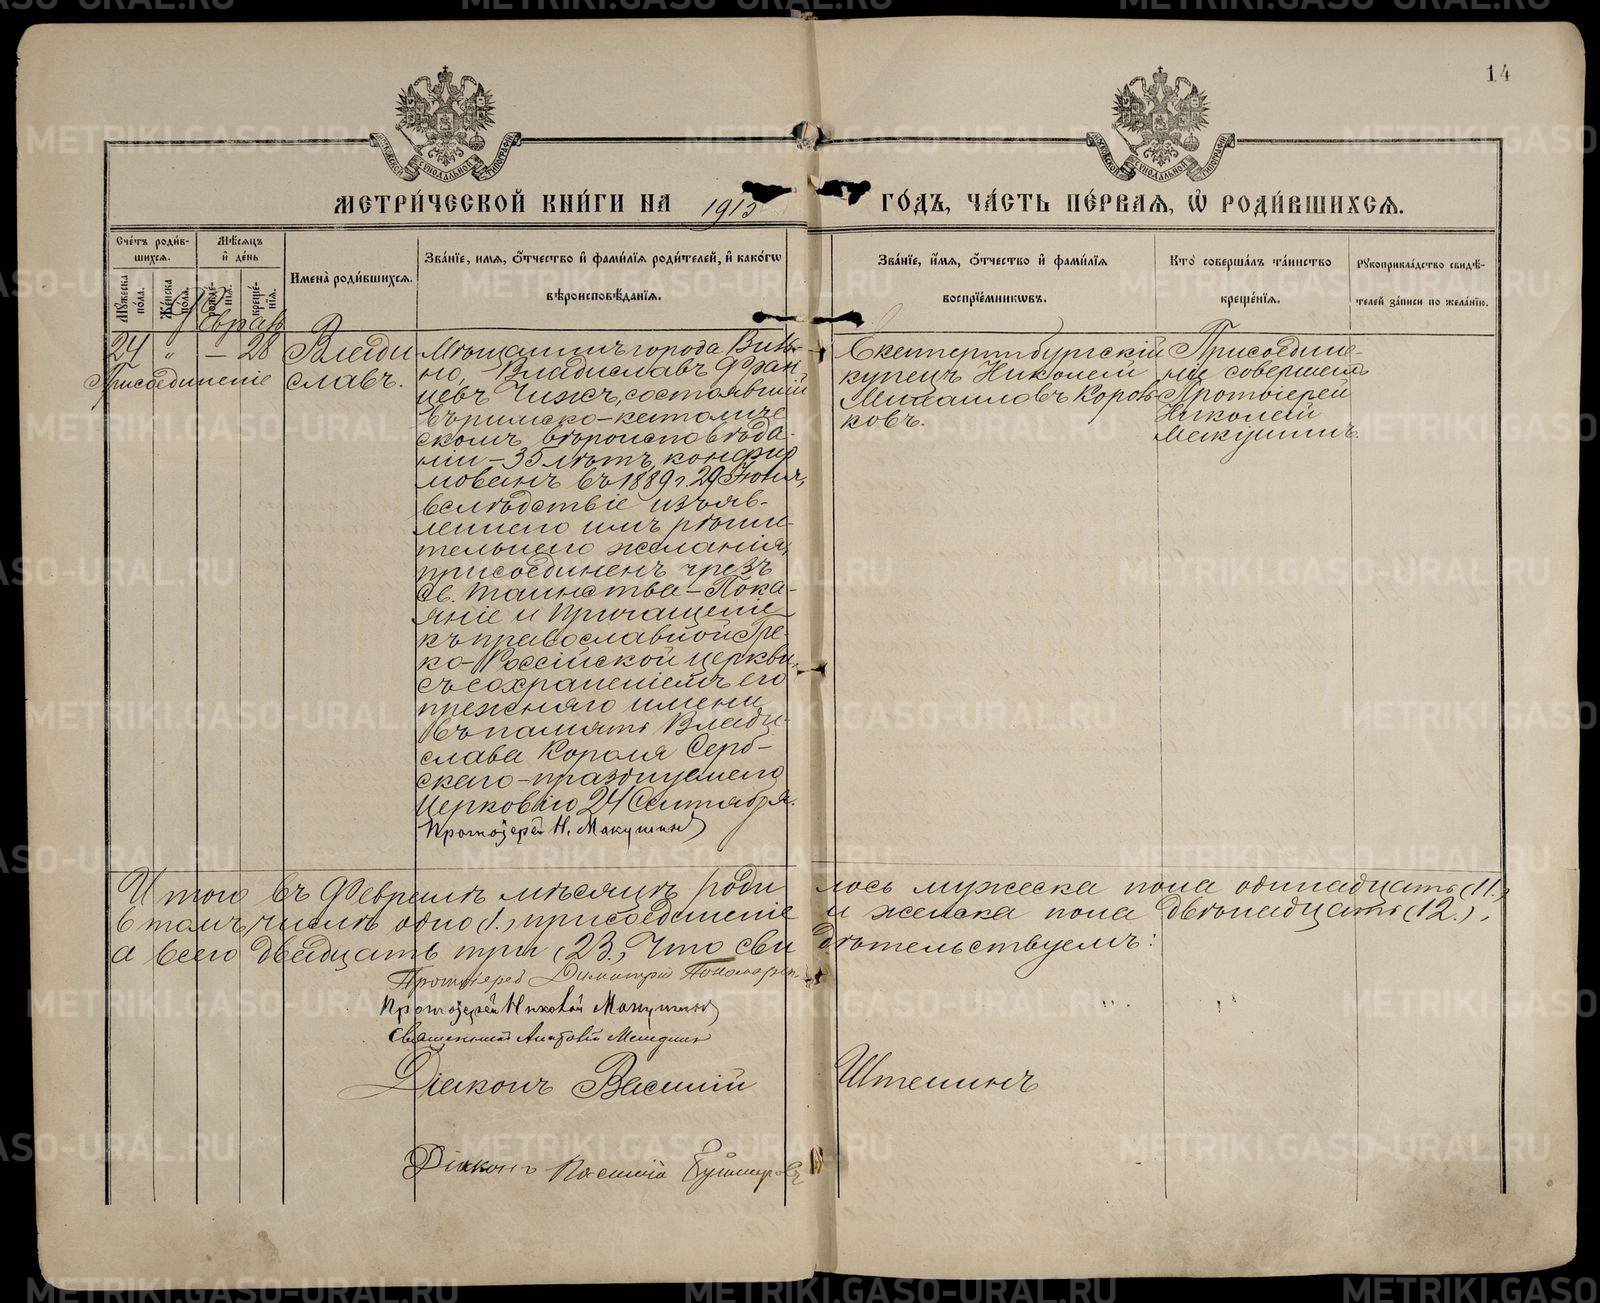 14
МЕТРИ́ЧЕСКОЙ КНИ́ГИ НА 1913 ГО́ДЪ, ЧА́СТЬ ПЕ́РВАЯ, Ѡ҆ РОДИ́ВШИХСЯ.
Сче́тъ роди́вшихся.
Мѣ́сяцъ и҆ де́нь
Му́жеска по́ла.
Же́нска по́ла.
рожде́нїя.
креще́нїя.
Имена̀ роди́вшихся.
Зва́нїе, имя, о҆́тчество и҆ фами́лїя роди́телей, и҆ како́гѡ
вѣроисповѣ́данїя.
Зва́нїе, и҆́мя, о҆́тчество и҆ фами́лїя
воспрїе́мниковъ.
Кто̀ соверша́лъ та́инство
креще́нїя.
Рукоприкла́дство свидѣ́-
телей за́писи по жела́нїю.
Феврал
24 " — 28
Присоединеніе
Влади
славъ.
Мѣщанинъ города Виль-
но, Владиславъ Фран
цевъ Чижъ, состоявшій
въ римско-католиче
скомъ вѣроисповѣда-
ніи – 35 лѣтъ, конфир
мованъ въ 1889 г. 29 Іюня,
вслѣдствіе изъяв-
леннаго имъ рѣши-
тельнаго желанія,
присоединенъ чрезъ
Св. Таинства – Пока-
яніе и Причащеніе
къ православной Гре-
ко-Россійской церкви,
съ сохраненіемъ его
прежняго имени
въ память Влади-
слава Короля Серб-
скаго – празднуемаго
Церковію 24 Сентября.
Протоіерей Н. Макушинъ
Екатеринбургскій
купецъ Николай
Михаиловъ Коров-
ковъ.
Присоедине-
ніе совершалъ
Протоіерей
Николай
Макушинъ.
Итого въ Февралѣ мѣсяцѣ роди лось мужеска пола одинадцать (11.)
въ томъ числѣ одно (1.) присоединеніе и женска пола двѣнадцать (12.),
а всего двадцать три (23.), Что сви дѣтельствуемъ:
Протоіерей Димитрій Пономарев
Протоіерей Николай Макушинъ
Священникъ Анатолій
Діаконъ Василій Штенинъ
Діаконъ Василій